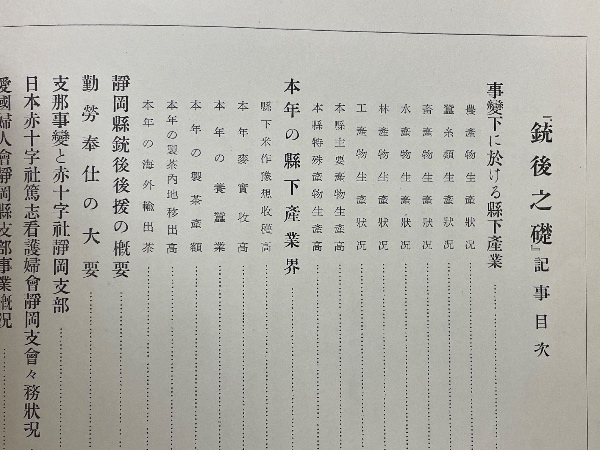 『銃後之礎』記事目次
事變下に於ける縣下產業
農產物生產狀況
蠶糸類生產狀況
畜產物生產狀況
水產物生產狀況
林產物生產狀況
工產物生產狀況
本縣主要產物生產高
本縣特殊產物生產高
本年の縣下產業界
縣下米作豫想收穫高
本年麥實收高
本年の養蠶業
本年の製茶產額
本年の製茶內地移出高
本年の海外輸出茶
靜岡縣銃後後援の槪要
勤勞奉仕の大要
支那事變と赤十字社靜岡支部
日本赤十字社篤志看護婦會靜岡支會々務狀況
愛國婦人會靜岡縣支部事業槪況